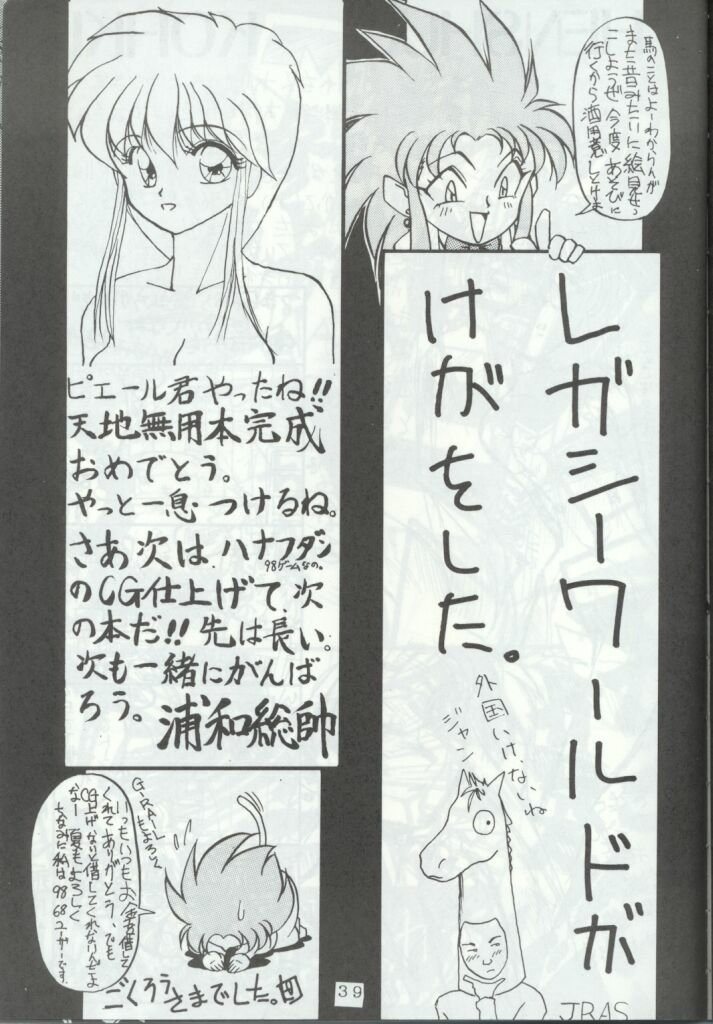 馬のことはよーわからんが
また昔みたいに絵見せっ
こしようぜ今度あそびに
行くから酒用意しとけよ
レガシーワールドが
けがをした。
外国いけないね
ジャン
JRAS
ピエール君やったね!!
天地無用本完成
おめでとう。
やっと一息つけるね。
さあ次は、ハナフダン
98ゲームなの。
のCG仕上げて、次
の本だ!! 先は長い。
次も一緒にがんば
ろう。
浦和総帥
G-RAIL
もよろしく
いつもいつもお金を借して
くれてありがとう、でも
CG上げないと借してくれないんだよ
なー 夏もよろしく
ちなみに私は98
68ユーザーです。
ごくろうさまでした。
39